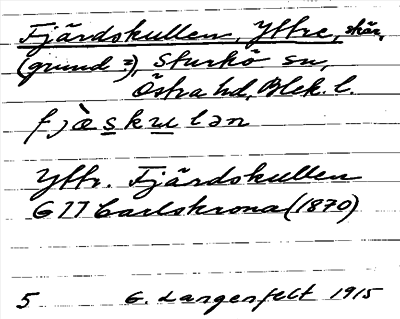 Fjärdskullen, Yttre, skär,
(grund =), Sturkö sn,
Östra hd, Blek. l.
fjæ̀skulən
Yttr. Fjärdskullen
G 77 Carlskrona (1870)
5 G. Langenfelt 1915